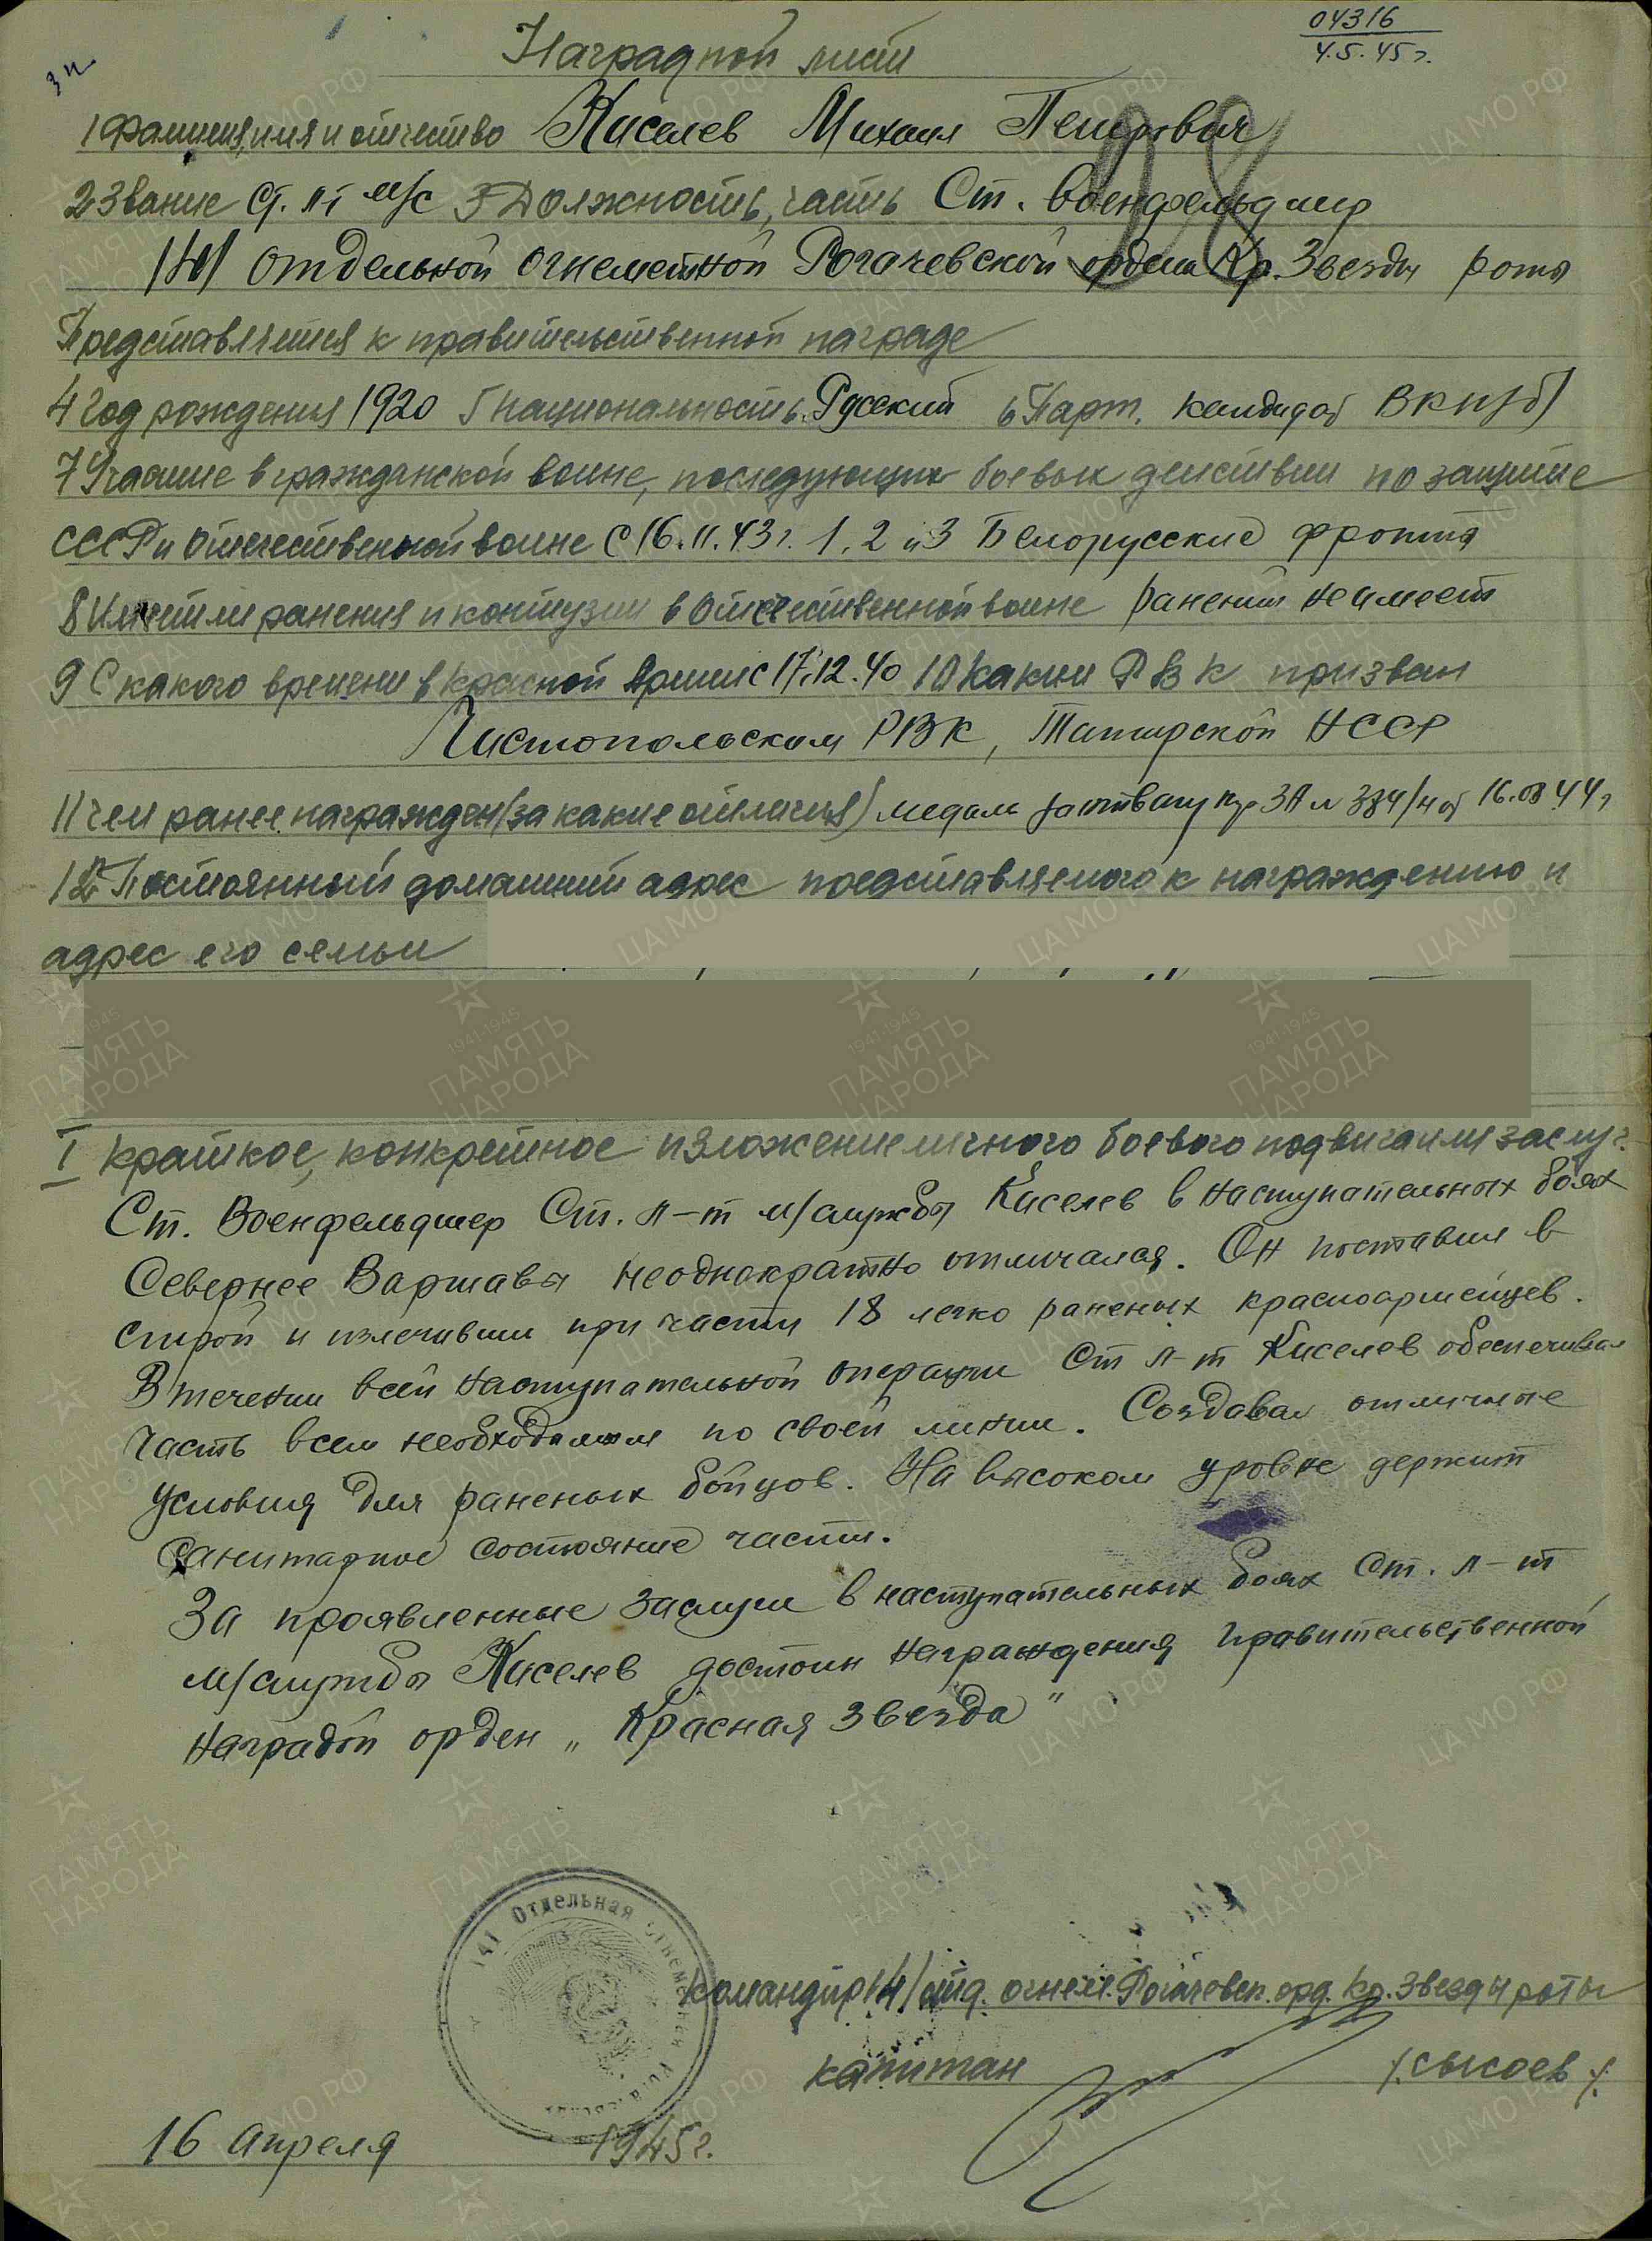 04316
4.5.45г.
Наградной лист
1 Фамилия, имя и отчество Киселев Михаил Петрович
2 Звание Ст. л-т м/с 3 Должность, часть Ст. Военфельдшер
141 отдельной огнеметной Рогачевской ордена Кр. Звезды роты
Представляется к правительственной награде
4 Год рождения 1920 5 Национальность Русский 6 Парт. кандидат ВКП(б)
7 Участие в гражданской воине, последующих боевых действии по защите
СССР и отечественной воине с 16.11.43г. 1, 2 и 3 Белорусские фронта
8 Имеет ли ранения и контузии в отечественной воине ранений не имеет
9 С какого времени в красной армии с 17.12.40 10 Каким РВК призван
Чистопольским РВК, Татарской АССР
11 чем ранее награжден (за какие отличия) медаль за отвагу пр 3А № 384/н от 16.08.44г
12 Постоянный домашний адрес представляемого к награждению и
адрес его семьи
I Краткое, конкретное изложение личного боевого подвига или заслуг.
Ст. Военфельдшер Ст. л-т м/службы Киселев в наступательных боях
Севернее Варшавы неоднократно отличался. Он поставил в
строй и излечивши при части 18 легко раненых красноармейцев.
В течении всей наступательной операции Ст л-т Киселев обеспечивал
часть всем необходимым по своей линии. Создавал отличные
условия для раненых бойцов. На высоком уровне держит
санитарное состояние части.
За проявленные заслуги в наступательных боях Ст. л-т
м/службы Киселев достоин награждения правительственной
наградой орден „Красная звезда"
141 Отдельная
командир 141 отд. огнем. Рогачевск. орд. Кр. Звезды роты
капитан /.Сысоев./.
16 апреля 1945г.